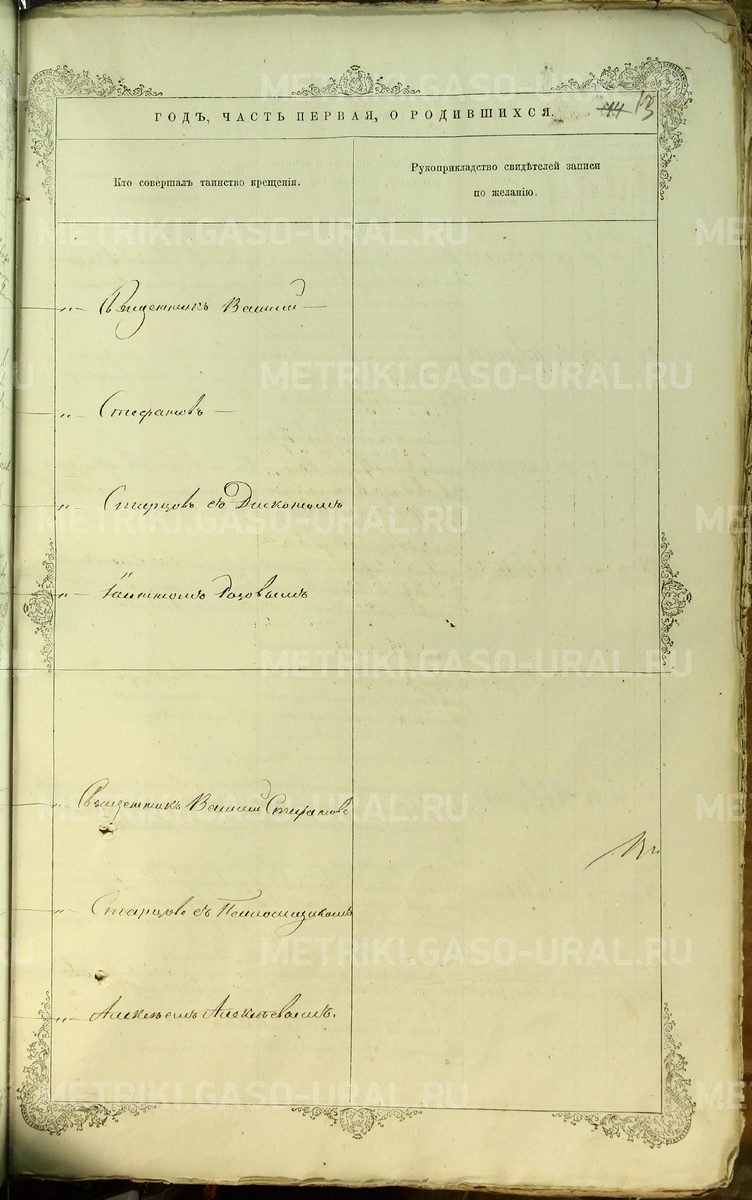 ГОДЪ, ЧАСТЬ ПЕРВАЯ, О РОДИВШИХСЯ.
14 13
Кто совершалъ таинство крещенія.
Рукоприкладство свидѣтелей записи
по желанію.
Священникъ Василій
Стефановъ
Старцовъ съ Діакономъ
Розовымъ
Священникъ Василій Стефановъ
Старцовъ съ
Алексѣемъ
METRIKI.GASO-URAL.RU